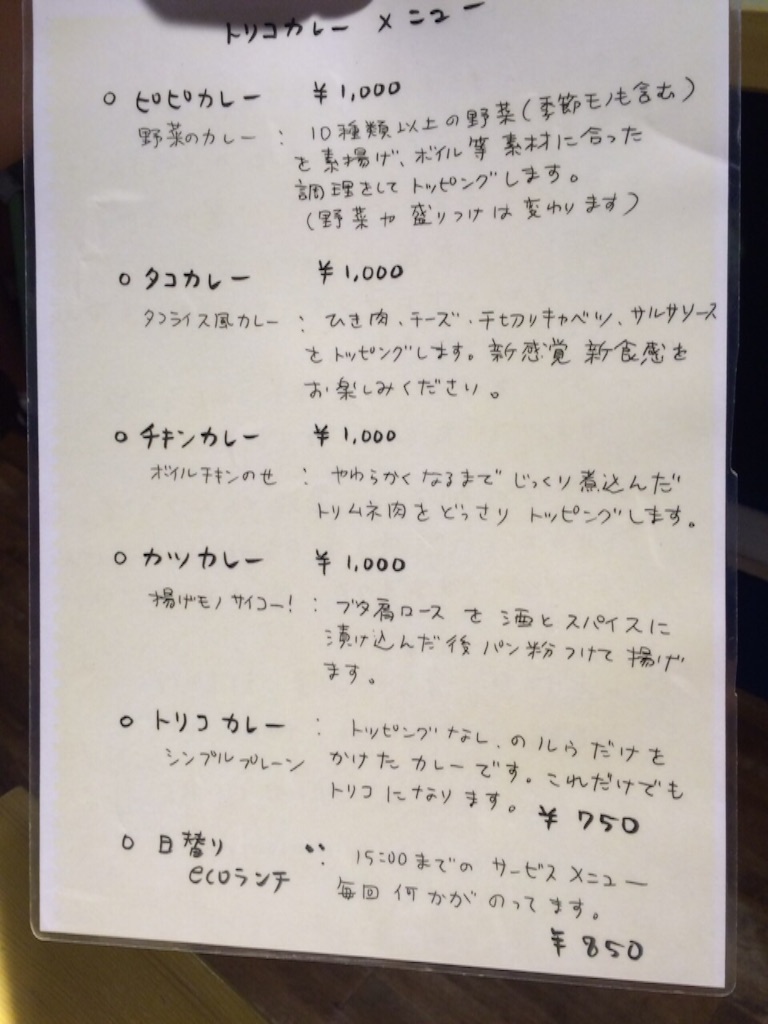 トリコカレー メニュー
○ ピピカレー ￥1,000
野菜のカレー : 10種類以上の野菜(季節モノも含む)
を素揚げ、ボイル等 素材に合った
調理をして トッピングします。
(野菜や盛りつけは変わります)
○ タコカレー ￥1,000
タコライス風カレー : ひき肉、チーズ・千切りキャベツ、サルサソース
をトッピングします。新感覚 新食感を
お楽しみください。
○ チキンカレー ￥1,000
ボイルチキンのせ : やわらかくなるまで じっくり煮込んだ
トリムネ肉を どっさり トッピングします。
○ カツカレー ￥1,000
揚げモノサイコー! : ブタ肩ロース を 酒と スパイスに
漬け込んだ後 パン粉つけて 揚げ
ます。
○ トリコカレー : トッピングなし、のルウだけを
シンプルプレーン かけたカレーです。これだけでも
トリコになります。 ￥750
○ 日替り : 15:00までの サービスメニュー
ecoランチ 毎回 何かが のってます。
￥850